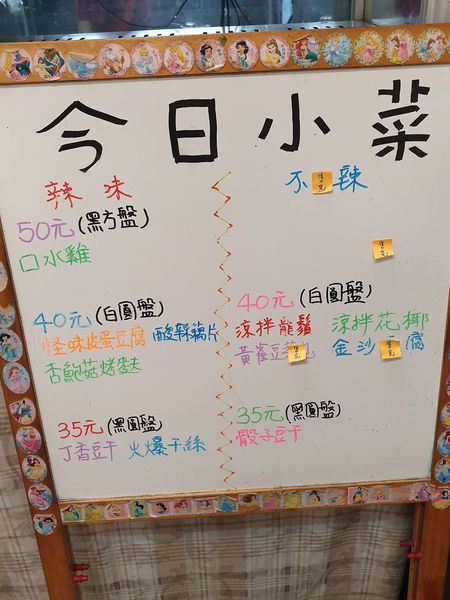 今日小菜
辣味
50元(黑方盤)
口水雞
40元(白圓盤)
怪味皮蛋豆腐 酸辣藕片
杏鮑菇烤麩
35元(黑圓盤)
丁香豆干 火爆干絲
不辣
售完
售完
40元(白圓盤)
涼拌龍鬚 涼拌花椰
黃雀豆包 售完 金沙 售完 腐
35元(黑圓盤)
骰子豆干